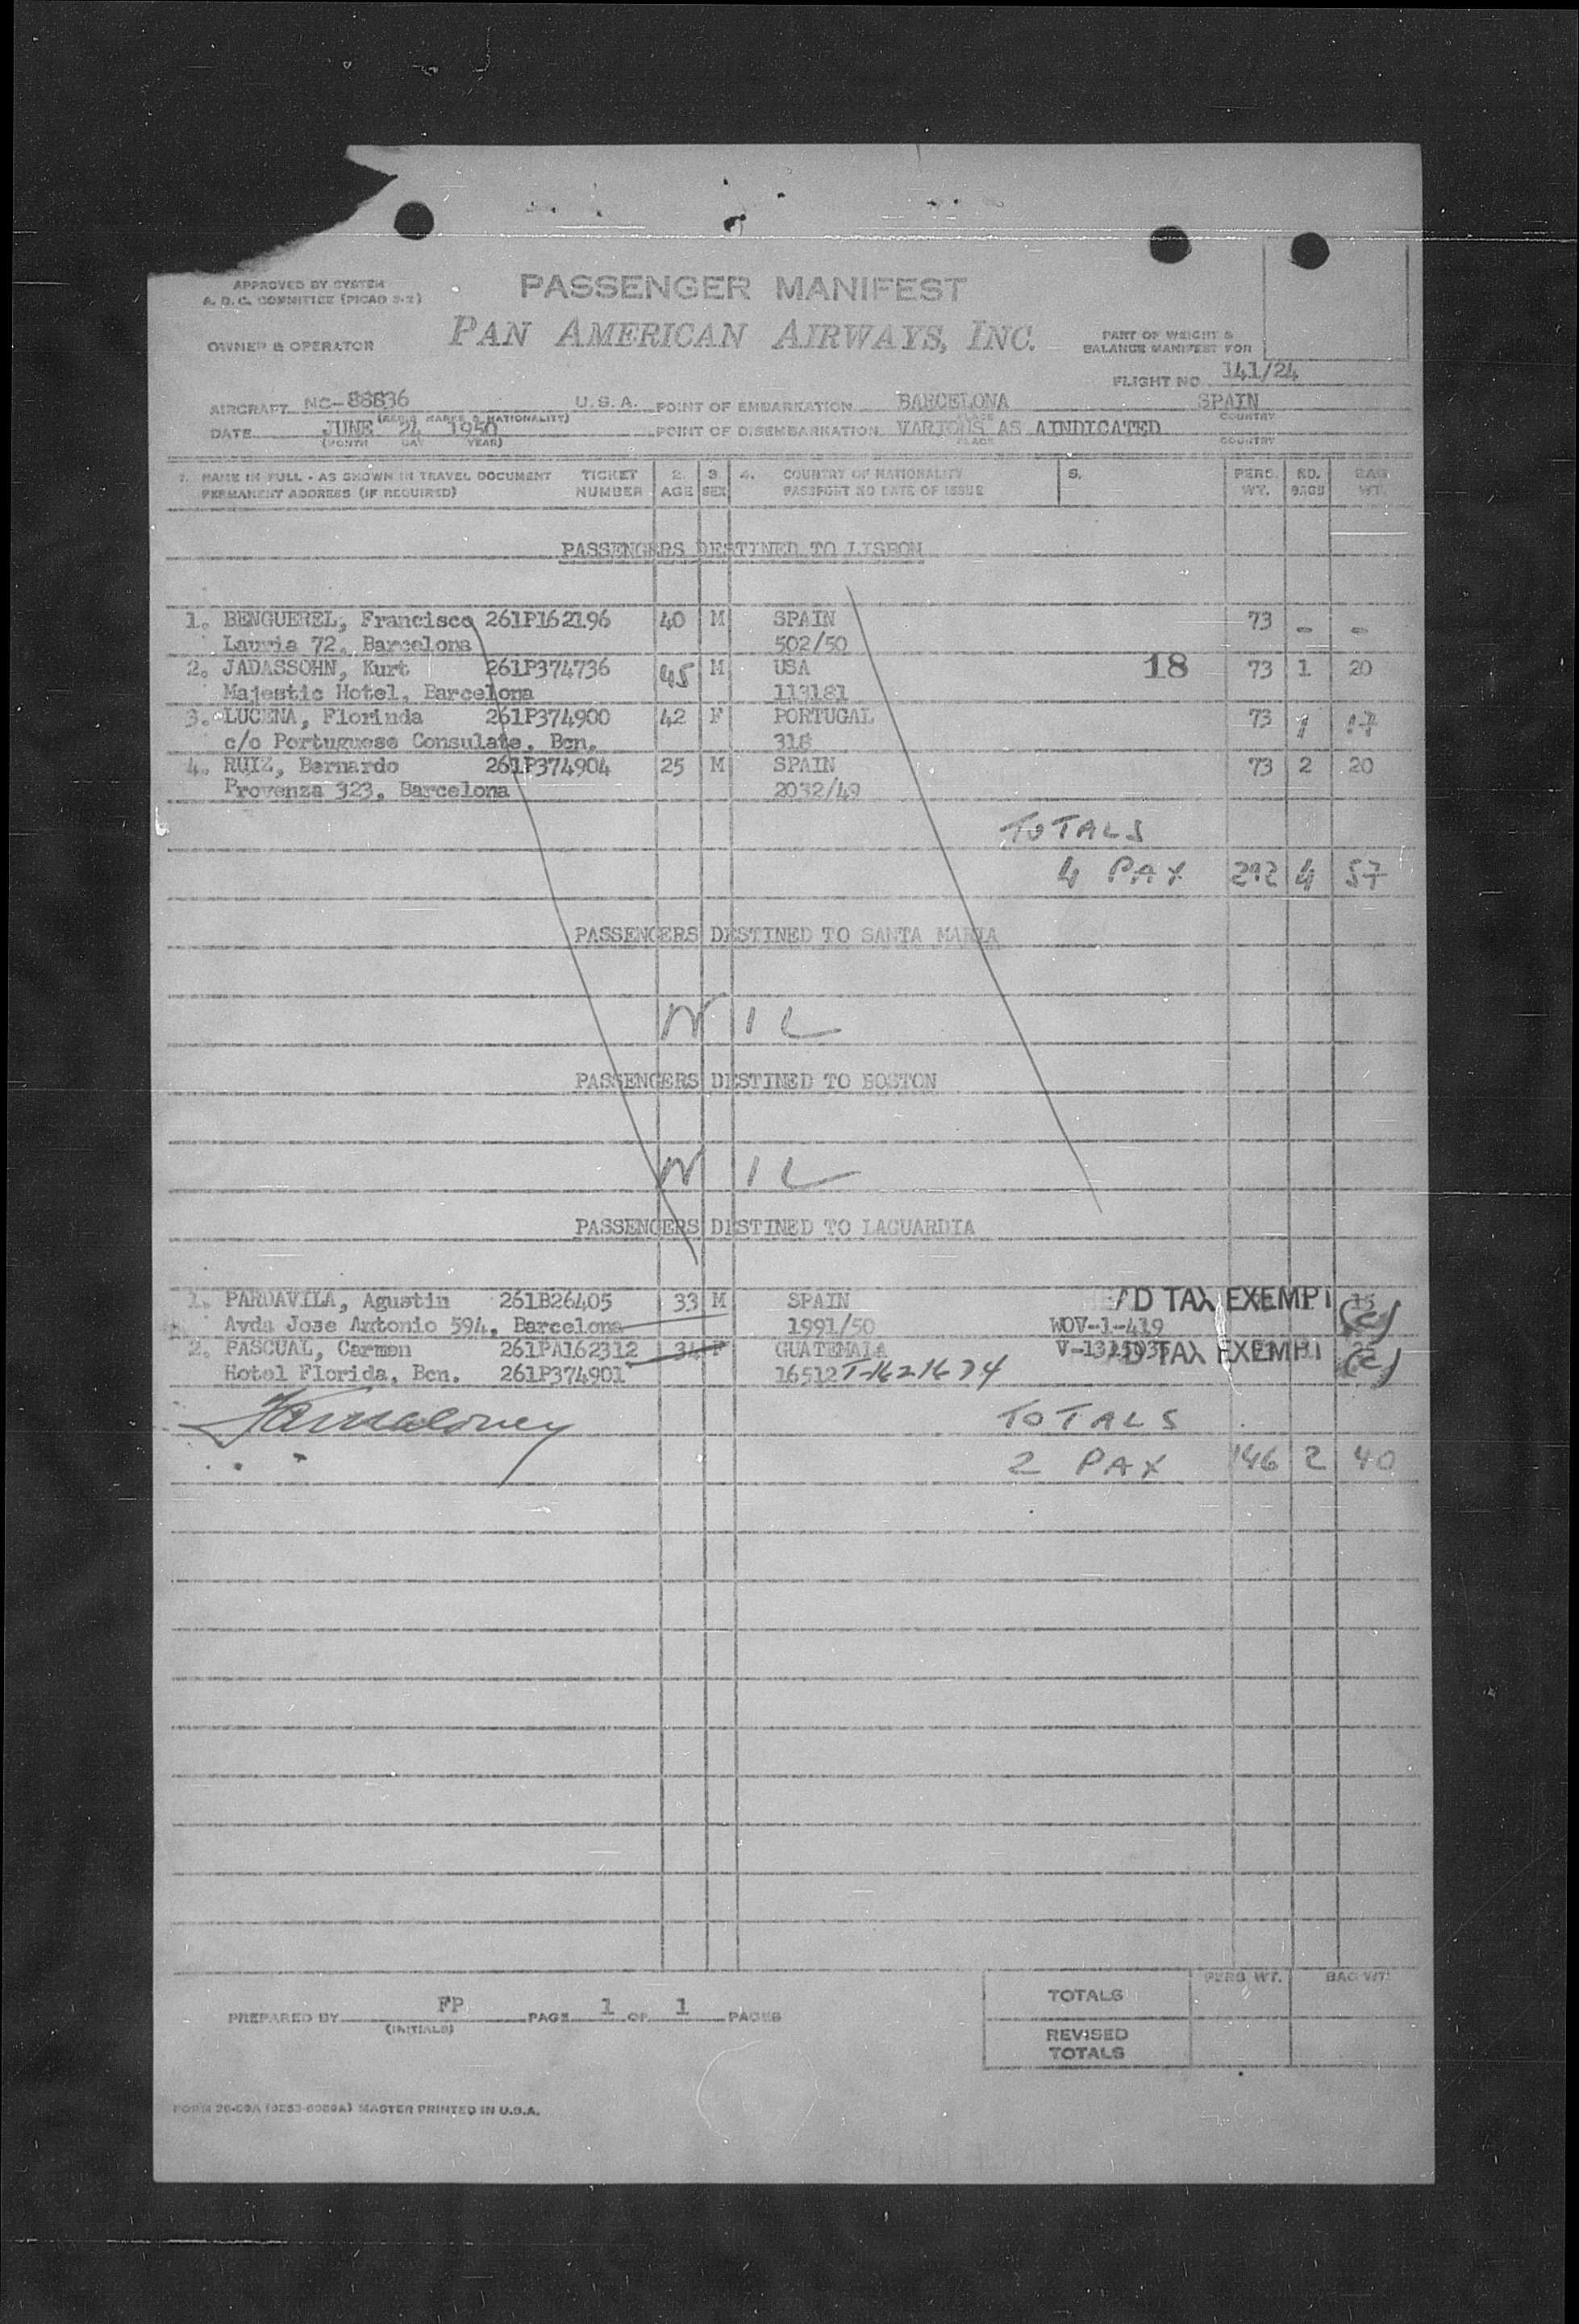 APPROVED BY SYSTEM
A. D. C. COMMITTEE (PICAO 9-2)
PASSENGER MANIFEST
OWNER & OPERATOR
PAN AMERICAN AIRWAYS, INC.
PART OF WEIGHT &
BALANCE MANIFEST FOR
FLIGHT NO. 141/24
AIRCRAFT NC-88836 U.S.A. POINT OF EMBARKATION BARCELONA SPAIN
(REG'D MARKS & NATIONALITY) PLACE COUNTRY
DATE JUNE 24 1950 POINT OF DISEMBARKATION VARIOUS AS AINDICATED
(MONTH DAY YEAR) PLACE COUNTRY
1. NAME IN FULL - AS SHOWN IN TRAVEL DOCUMENT TICKET 2. 3. 4. COUNTRY OF NATIONALITY 5. PERS. NO. BAG
PERMANENT ADDRESS (IF REQUIRED) NUMBER AGE SEX PASSPORT NO DATE OF ISSUE WT. BAGS WT.
PASSENGERS DESTINED TO LISBON
1. BENGUEREL, Francisco 261P162196 40 M SPAIN 73 - -
Lauria 72, Barcelona 502/50
2. JADASSOHN, Kurt 261P374736 45 M USA 18 73 1 20
Majestic Hotel, Barcelona 113181
3. LUCENA, Florinda 261P374900 42 F PORTUGAL 73 1 17
c/o Portuguese Consulate, Bcn. 318
4. RUIZ, Bernardo 261P374904 25 M SPAIN 73 2 20
Provenza 323, Barcelona 2032/49
TOTALS
4 PAX 292 4 57
PASSENGERS DESTINED TO SANTA MARIA
NIL
PASSENGERS DESTINED TO BOSTON
NIL
PASSENGERS DESTINED TO LAGUARDIA
1. PARDAVILA, Agustin 261B26405 33 M SPAIN HEAD TAX EXEMPT 15
Avda Jose Antonio 594, Barcelona 1991/50 WOV-1-419 (c)
2. PASCUAL, Carmen 261PA162312 34 F GUATEMALA HEAD TAX EXEMPT 25
Hotel Florida, Bcn. 261P374901 16512 T-1621674 (c)
TOTALS
2 PAX 146 2 40
PREPARED BY FP PAGE 1 OF 1 PAGES
(INITIALS)
PERS WT. BAG WT.
TOTALS
REVISED
TOTALS
MASTER PRINTED IN U.S.A.